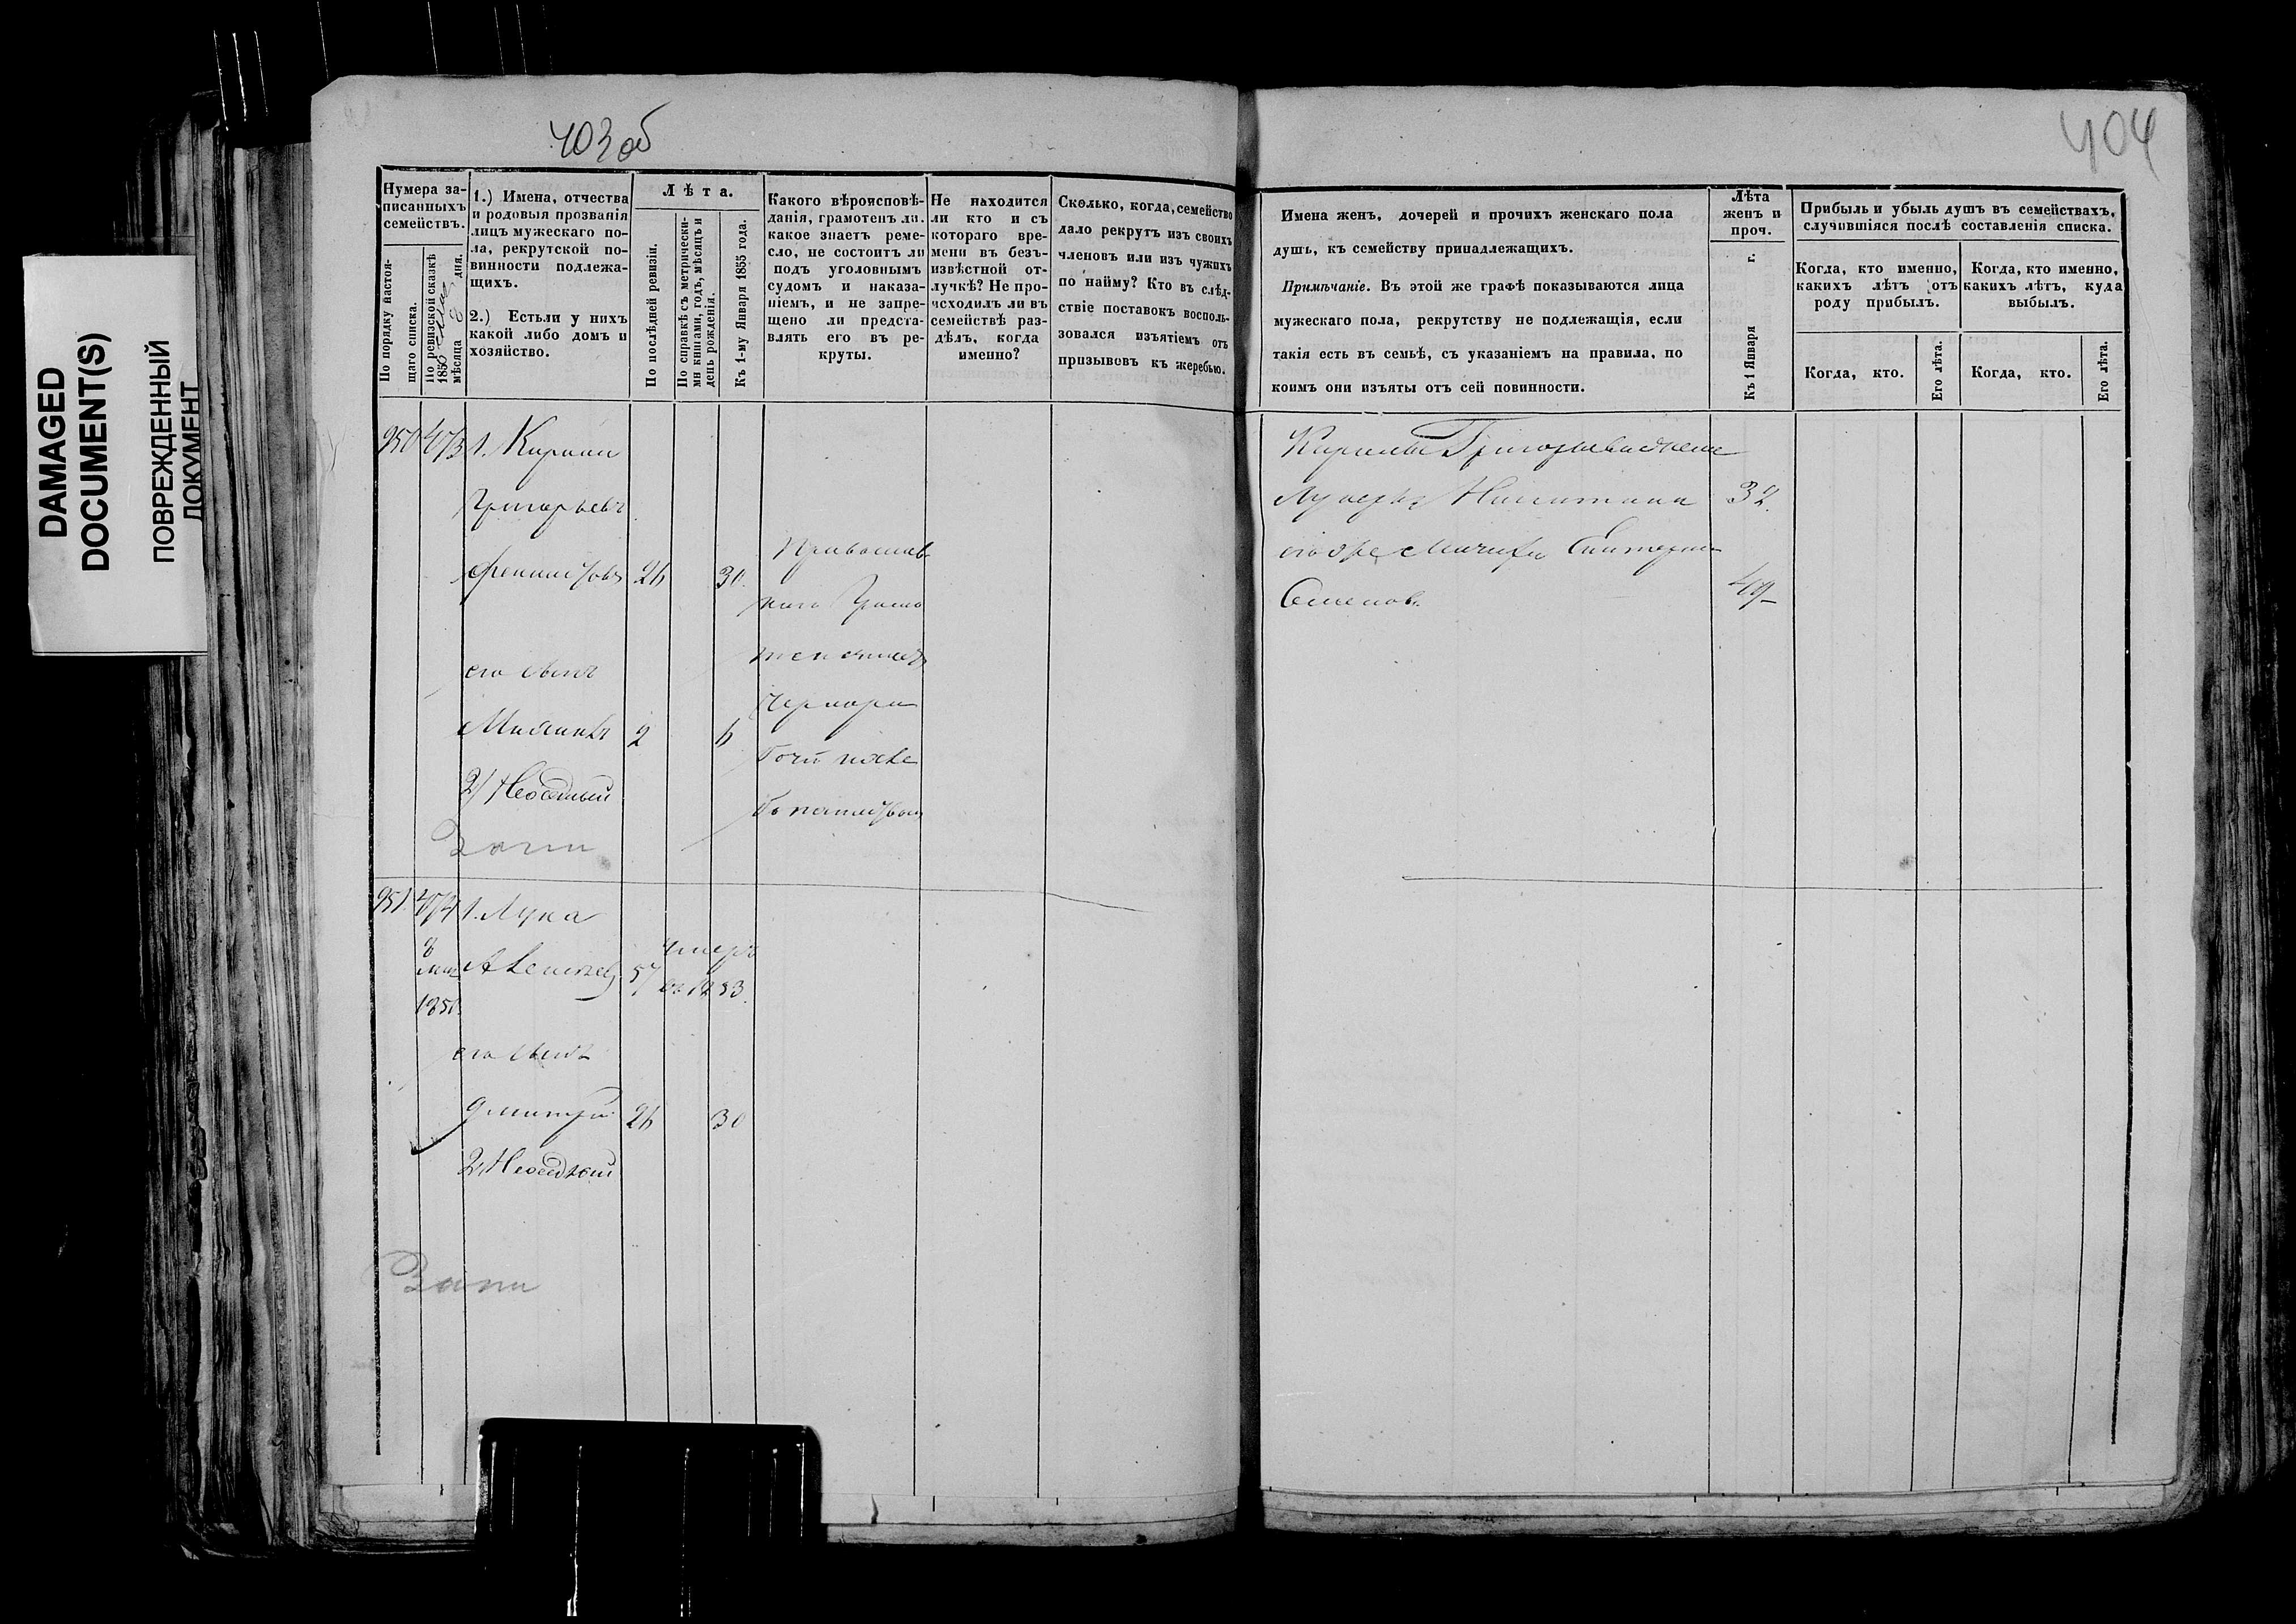 DAMAGED
DOCUMENT(S)
ПОВРЕЖДЕННЫЙ
ДОКУМЕНТ
403 об
Нумера за-
писанныхъ
семействъ.
По порядку настоя-
щаго списка.
По ревизской сказкѣ
1850
мѣсяца 8 дня.
1.) Имена, отчества
и родовыя прозванія
лицъ мужескаго по-
ла, рекрутской по-
винности подлежа-
щихъ.
2.) Естьли у нихъ
какой либо домъ и
хозяйство.
Лѣта.
По послѣдней ревизіи.
По справкѣ съ метрически-
ми книгами, годъ, мѣсяцъ и
день рожденія.
Къ 1-му Января 1855 года.
Какого вѣроисповѣ-
данія, грамотенъ ли.
какое знаетъ реме-
сло, не состоитъ ли
подъ уголовнымъ
судомъ и наказа-
ніемъ, и не запре-
щено ли предста-
влять его въ ре-
круты.
Не находится
ли кто и съ
котораго вре-
мени въ безъ-
извѣстной от-
лучкѣ? Не про-
исходилъ ли въ
семействѣ раз-
дѣлъ, когда
именно?
Сколько, когда, семейство
дало рекрутъ изъ своихъ
членовъ или изъ чужихъ
по найму? Кто въ слѣд-
ствіе поставокъ восполь-
зовался изъятіемъ отъ
призывовъ къ жеребью.
950 1. Кирила
Григорьевъ
26 30.
его сынъ
2 6
2/ Неоседлый
951. 1. Лука
8
Мая
1850
57 умеръ
въ 1853.
его сынъ
Дмитрій 26 30
2/ Неоседлый
404
Имена женъ, дочерей и прочихъ женскаго пола
душъ, къ семейству принадлежащихъ.
Примѣчаніе. Въ этой же графѣ показываются лица
мужескаго пола, рекрутству не подлежащія, если
такія есть въ семьѣ, съ указаніемъ на правила, по
коимъ они изъяты отъ сей повинности.
Лѣта
женъ и
проч.
Къ 1 Января г.
Прибыль и убыль душъ въ семействахъ,
случившіяся послѣ составленія списка.
Когда, кто именно,
какихъ лѣтъ отъ
роду прибылъ.
Когда, кто именно,
какихъ лѣтъ, куда
выбылъ.
Когда, кто.
Его лѣта.
Когда, кто.
Его лѣта.
Кирилы Григорьева жена
Никитина 32.
49